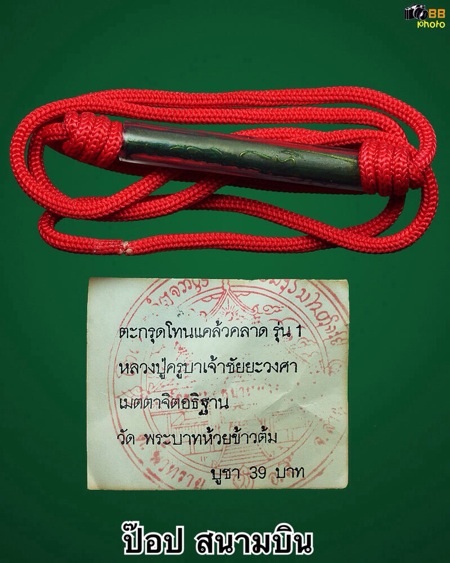 88
photo
ตะกรุดโทนแคล้วคลาด รุ่น 1
หลวงปู่ครูบาเจ้าชัยยะวงศา
เมตตาจิตอธิฐาน
วัด พระบาทห้วยข้าวต้ม
บูชา 39 บาท
ป๊อป สนามบิน